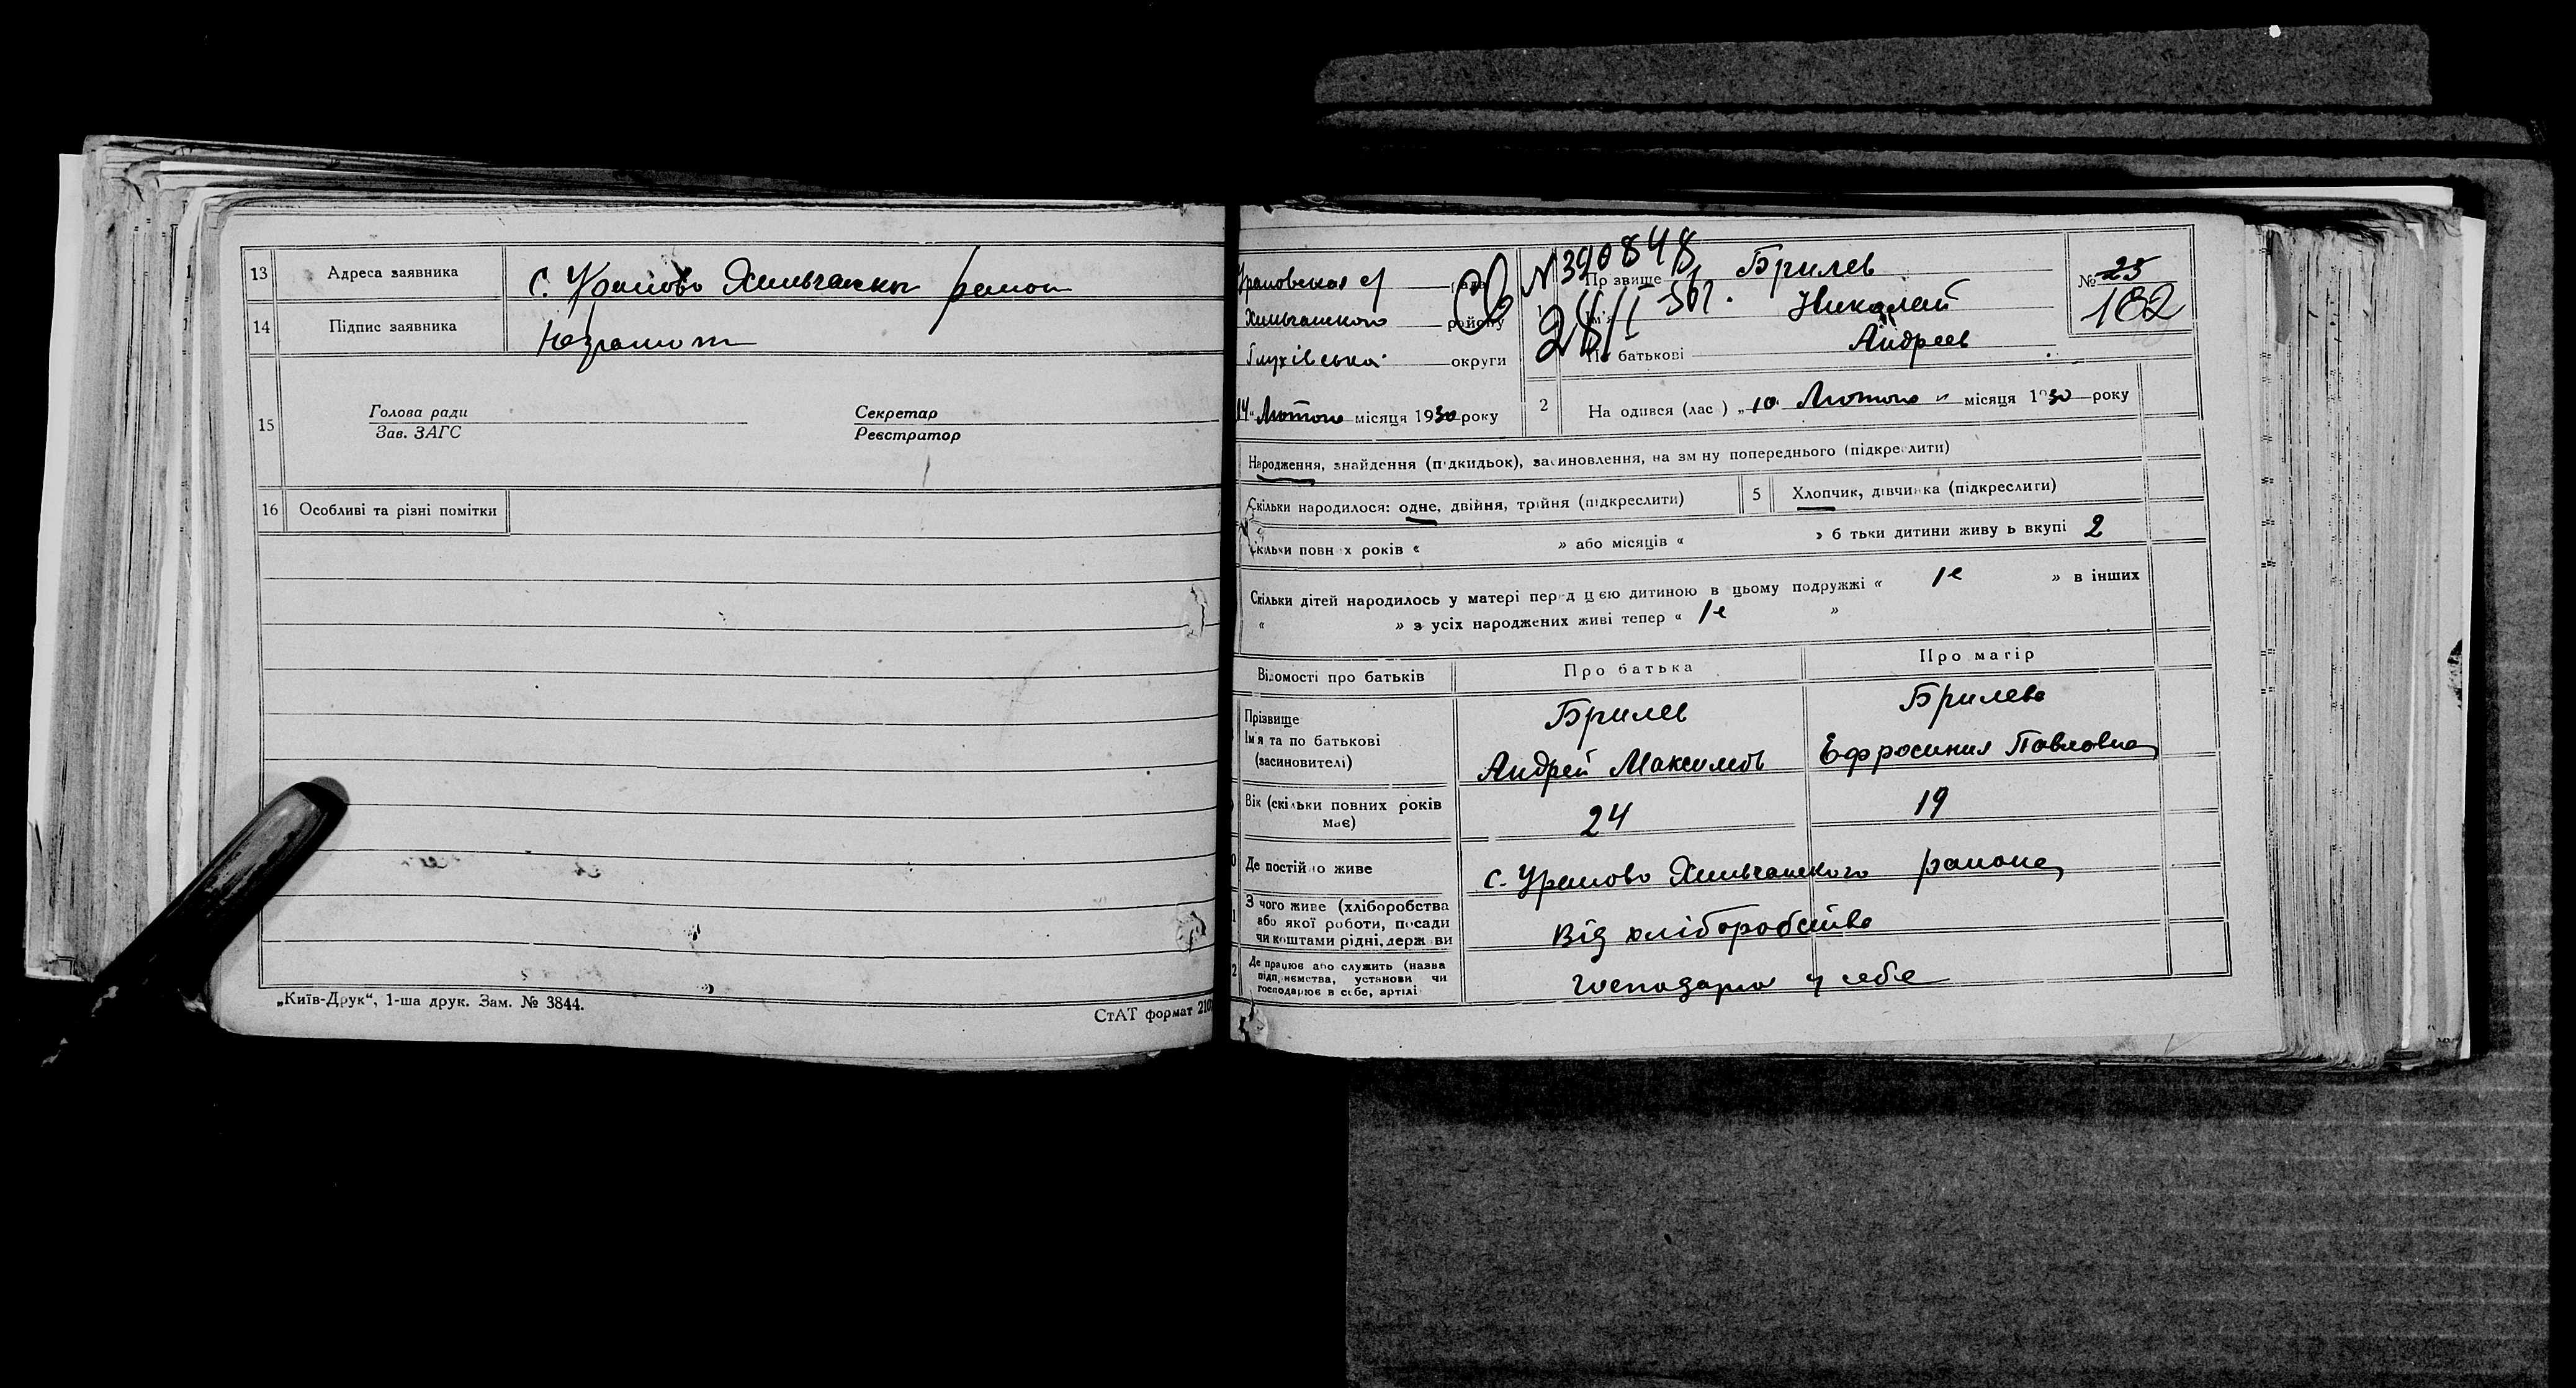 13 Адреса заявника с. Уралово Хильчански район
14 Підпис заявника Неграмотн
15 Голова ради Секретар
Зав. ЗАГС Реєстратор
16 Особливі та різні помітки
„Київ-Друк“, 1-ша друк. Зам. № 3844.
СтАТ формат 210
Ураловская с/ рада
Хильчанского району
Глухівська округи
14 „Лютого місяця 1930 року
N 390848
28/II 56г.
Прізвище Брилев
Ім'я Николай
По батькові Андреев
№ 25
102
2 На одився (лас ) „ 10 Лютого " місяця 1930 року
Народження, знайдення (підкидьок), засиновлення, на зм ну попереднього (підкреслити)
Скільки народилося: одне, двійня, трійня (підкреслити) 5 Хлопчик, дівчинка (підкреслити)
Скільки повн х років « » або місяців « » б тьки дитини живу ь вкупі 2
Скільки дітей народилось у матері перед цією дитиною в цьому подружжі « 1е » в інших
« » з усіх народжених живі тепер « 1е »
Відомості про батьків Про батька Про матір
Прізвище Брилев Брилева
Ім'я та по батькові
(засиновителі) Андрей Максимов Ефросиния Павловна
Вік (скільки повних років
має) 24 19
Де постійно живе с. Уралово Хильчанского района
З чого живе (хліборобства
або якої роботи, посади
чи коштами рідні, держ ви Від хліборобства
Де працює або служить (назва
підприємства, установи чи
господарює в себе, артілі Господарю у себе